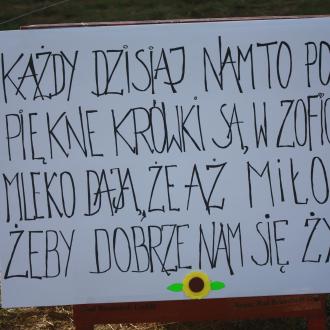 KAŻDY DZISIAJ NAM TO PO
PIĘKNE KRÓWKI SĄ, W ZOFIO
MLEKO DAJĄ, ŻE AŻ MIŁO
ŻEBY DOBRZE NAM SIĘ ŻY